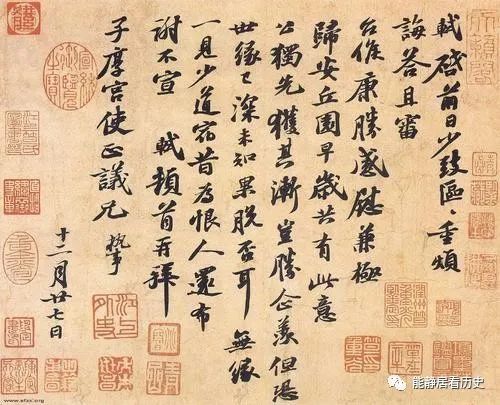 軾啓前日少致區々重煩
誨答且審
台候康勝感慰兼極
歸安丘園早歲共有此意
公獨先獲其漸豈勝企羨但恐
世緣已深未知果脫否耳無緣
一見少道宿昔為恨人還布
謝不宣 軾頓首再拜
子厚宮使正議兄執事
十二月廿七日
能静居看历史